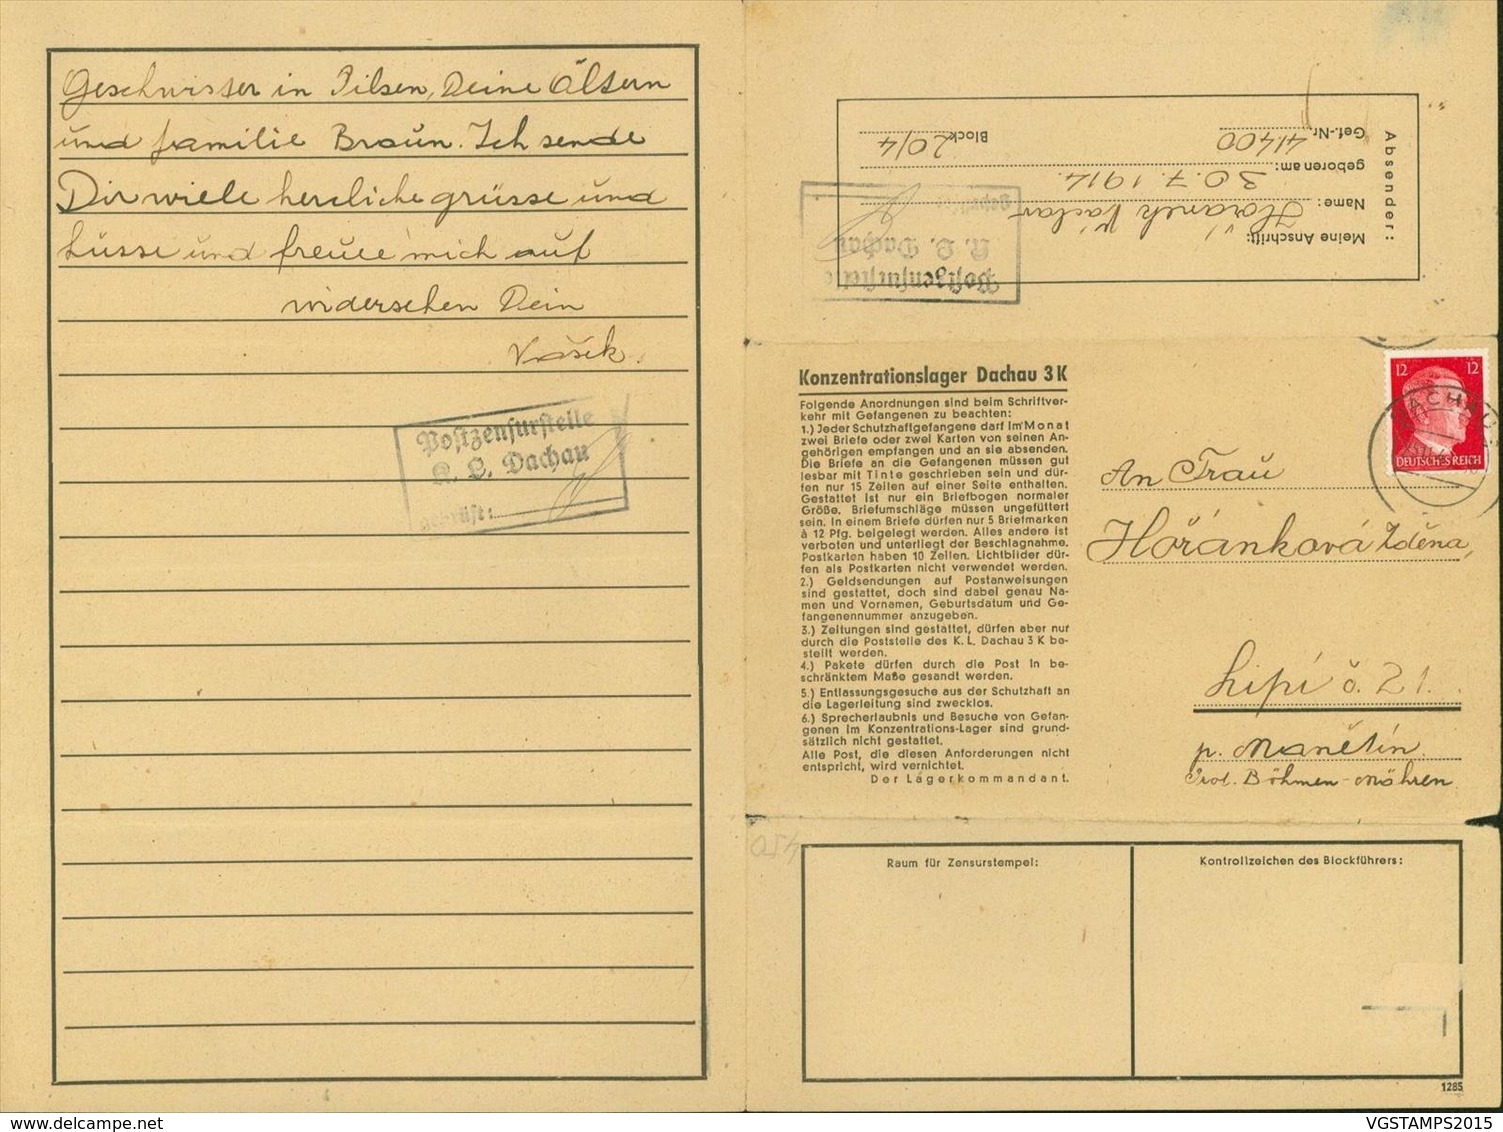 Geschwister in Pilsen, Deine Ältern
und familie Braun. Ich sende
Dir wiele herzliche grüsse und
küsse und freue mich auf
widersehen Dein
Vašek.
Postzensurstelle
K. L. Dachau
geprüft:
Absender:
Meine Anschrift:
Name: Hořánek Václav
geboren am: 30.7.1914.
Gef.-Nr. 41400 Block 20/4
Postzensurstelle
K. L. Dachau
geprüft
Konzentrationslager Dachau 3 K
Folgende Anordnungen sind beim Schriftver-
kehr mit Gefangenen zu beachten:
1.) Jeder Schutzhaftgefangene darf im Monat
zwei Briefe oder zwei Karten von seinen An-
gehörigen empfangen und an sie absenden.
Die Briefe an die Gefangenen müssen gut
lesbar mit Tinte geschrieben sein und dür-
fen nur 15 Zeilen auf einer Seite enthalten.
Gestattet ist nur ein Briefbogen normaler
Größe. Briefumschläge müssen ungefüttert
sein. In einem Briefe dürfen nur 5 Briefmarken
à 12 Pfg. beigelegt werden. Alles andere ist
verboten und unterliegt der Beschlagnahme.
Postkarten haben 10 Zeilen. Lichtbilder dür-
fen als Postkarten nicht verwendet werden.
2.) Geldsendungen auf Postanweisungen
sind gestattet, doch sind dabei genau Na-
men und Vornamen, Geburtsdatum und Ge-
fangenennummer anzugeben.
3.) Zeitungen sind gestattet, dürfen aber nur
durch die Poststelle des K. L. Dachau 3 K be-
stellt werden.
4.) Pakete dürfen durch die Post in be-
schränktem Maße gesandt werden.
5.) Entlassungsgesuche aus der Schutzhaft an
die Lagerleitung sind zwecklos.
6.) Sprecherlaubnis und Besuche von Gefan-
genen im Konzentrations-Lager sind grund-
sätzlich nicht gestattet.
Alle Post, die diesen Anforderungen nicht
entspricht, wird vernichtet.
Der Lagerkommandant.
12 12
DEUTSCHES REICH
DACHAU
An Frau
Hořánková Zděna,
Lipí č. 21.
p. Manětín.
Prot. Böhmen-Mähren
Raum für Zensurstempel:
Kontrollzeichen des Blockführers:
1285
VGSTAMPS2015